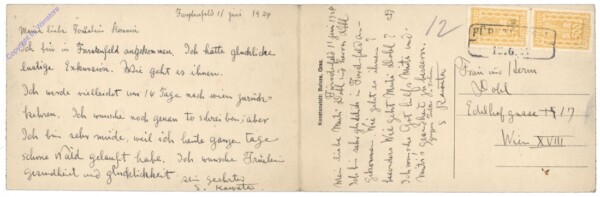 Fürstenfeld 11 juni 1924
Meine liebe Fräulein
Ich bin in Fürstenfeld angekommen. Ich hatte glückliche
lustige Exkursion. Wie geht es ihnen.
Ich werde vielleicht um 14 Tage nach wien zurück-
kehren. Ich wunsche noch genau to schreiben, aber
Ich bin sehr müde, weil ich heute ganzen tage
schone Wald gelauft habe. Ich wunsche Fräulein
Gesundheit und glücklichkeit
sein geehrter
S. Kawata
Kunstanstalt
Graz.
Fürstenfeld 11 juni 1924
Mein liebe Mutti Dohl und Herrn Dohl
Ich bin sehr glücklich in Fürstenfeld an-
gekommen. Wie geht es ihnen?
besonders Wie geht Mutti Dohl?
Ich wunsche Gott helfe Mutti und
Mutti's Gesundheit
S Kawata
12
Frau und Herrn
Dohl
Edelhofgasse 17/7
Wien XVIII